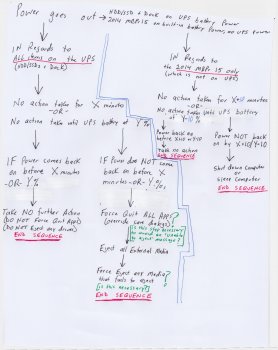 Power goes out → HDD/SSD + Dock on UPS Battery Power
→ 2014 MBP15 on built-in battery Power, no UPS power
IN Regards to
ALL items on the UPS
(HDD/SSDs + Dock)
No action taken for X minutes
-OR-
No action take until UPS battery at Y%
IF Power comes back
on before X minutes
-OR- Y%
Take NO further Action
(DO NOT Force Quit Apps)
(DO NOT Eject any drives)
END SEQUENCE
IF Power does NOT come
back on before X
minutes -OR- Y%
Force Quit ALL Apps
(override save dialogs)
[Is this step necessary
to avoid an "unable
to eject message"?]
Eject all External Media
Force Eject any Media
that fails to eject
[is this necessary?]
END SEQUENCE
IN Regards to
the 2014 MBP 15 only
(which is not on UPS)
No action taken for X+10 minutes
-OR-
No action taken until UPS battery
at Y-10 %
Power back on
before X+10 or Y-10
Take no action
END SEQUENCE
Power NOT back
on by X+10/Y-10
Shut down computer
or sleep computer
END SEQUENCE